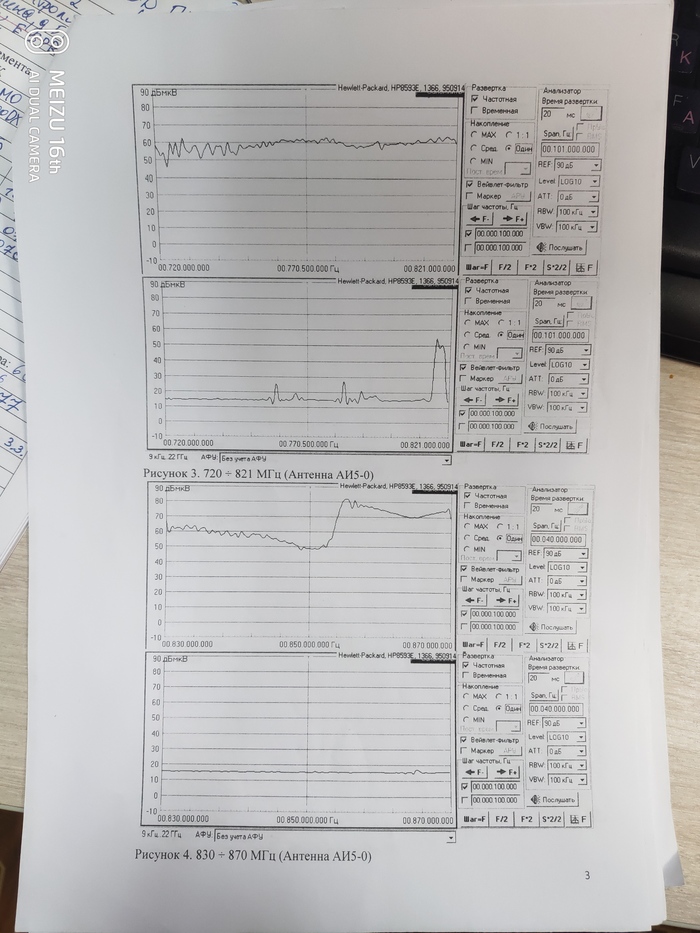 MEIZU 16th
AI DUAL CAMERA
90 дБмкВ
Hewlett-Packard, HP8593E, 1366, 950914
80
70
60
50
40
30
20
10
0
-10
00.720.000.000
00.770.500.000 Гц
00.821.000.000
Развертка
Частотная
Временная
Накопление
MAX
1:1
Сред.
Один
MIN
Вейвлет-фильтр
Маркер
Шаг частоты, Гц
F-
F+
00.000.100.000
00.000.100.000
Анализатор
Время развертки
20
мс
Span, Гц
00.101.000.000
REF: 90 дБ
Level: LOG10
ATT: 0 дБ
RBW: 100 кГц
VBW: 100 кГц
Послушать
Шаг=F
F/2
F*2
S*2/2
F
90 дБмкВ
Hewlett-Packard, HP8593E, 1366, 950914
80
70
60
50
40
30
20
10
0
-10
00.720.000.000
00.770.500.000 Гц
00.821.000.000
Развертка
Частотная
Временная
Накопление
MAX
1:1
Сред.
Один
MIN
Вейвлет-фильтр
Маркер
Шаг частоты, Гц
F-
F+
00.000.100.000
00.000.100.000
Анализатор
Время развертки
20
мс
Span, Гц
00.101.000.000
REF: 90 дБ
Level: LOG10
ATT: 0 дБ
RBW: 100 кГц
VBW: 100 кГц
Послушать
Шаг=F
F/2
F*2
S*2/2
F
9 кГц. 22 ГГц
АФУ: Без учета АФУ
Рисунок 3. 720 ÷ 821 МГц (Антенна АИ5-0)
90 дБмкВ
Hewlett-Packard, HP8593E, 1366, 950914
80
70
60
50
40
30
20
10
0
-10
00.830.000.000
00.850.000.000 Гц
00.870.000.000
Развертка
Частотная
Временная
Накопление
MAX
1:1
Сред.
Один
MIN
Вейвлет-фильтр
Маркер
Шаг частоты, Гц
F-
F+
00.000.100.000
00.000.100.000
Анализатор
Время развертки
20
мс
Span, Гц
00.040.000.000
REF: 90 дБ
Level: LOG10
ATT: 0 дБ
RBW: 100 кГц
VBW: 100 кГц
Послушать
Шаг=F
F/2
F*2
S*2/2
F
90 дБмкВ
Hewlett-Packard, HP8593E, 1366, 950914
80
70
60
50
40
30
20
10
0
-10
00.830.000.000
00.850.000.000 Гц
00.870.000.000
Развертка
Частотная
Временная
Накопление
MAX
1:1
Сред.
Один
MIN
Вейвлет-фильтр
Маркер
Шаг частоты, Гц
F-
F+
00.000.100.000
00.000.100.000
Анализатор
Время развертки
20
мс
Span, Гц
00.040.000.000
REF: 90 дБ
Level: LOG10
ATT: 0 дБ
RBW: 100 кГц
VBW: 100 кГц
Послушать
Шаг=F
F/2
F*2
S*2/2
F
9 кГц. 22 ГГц
АФУ: Без учета АФУ
Рисунок 4. 830 ÷ 870 МГц (Антенна АИ5-0)
3